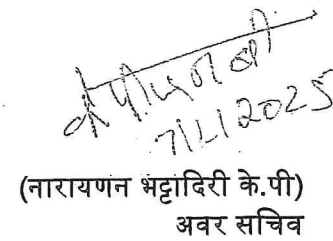 के पी एन बी
7/1/2025
(नारायणन भट्टादिरी के.पी)
अवर सचिव